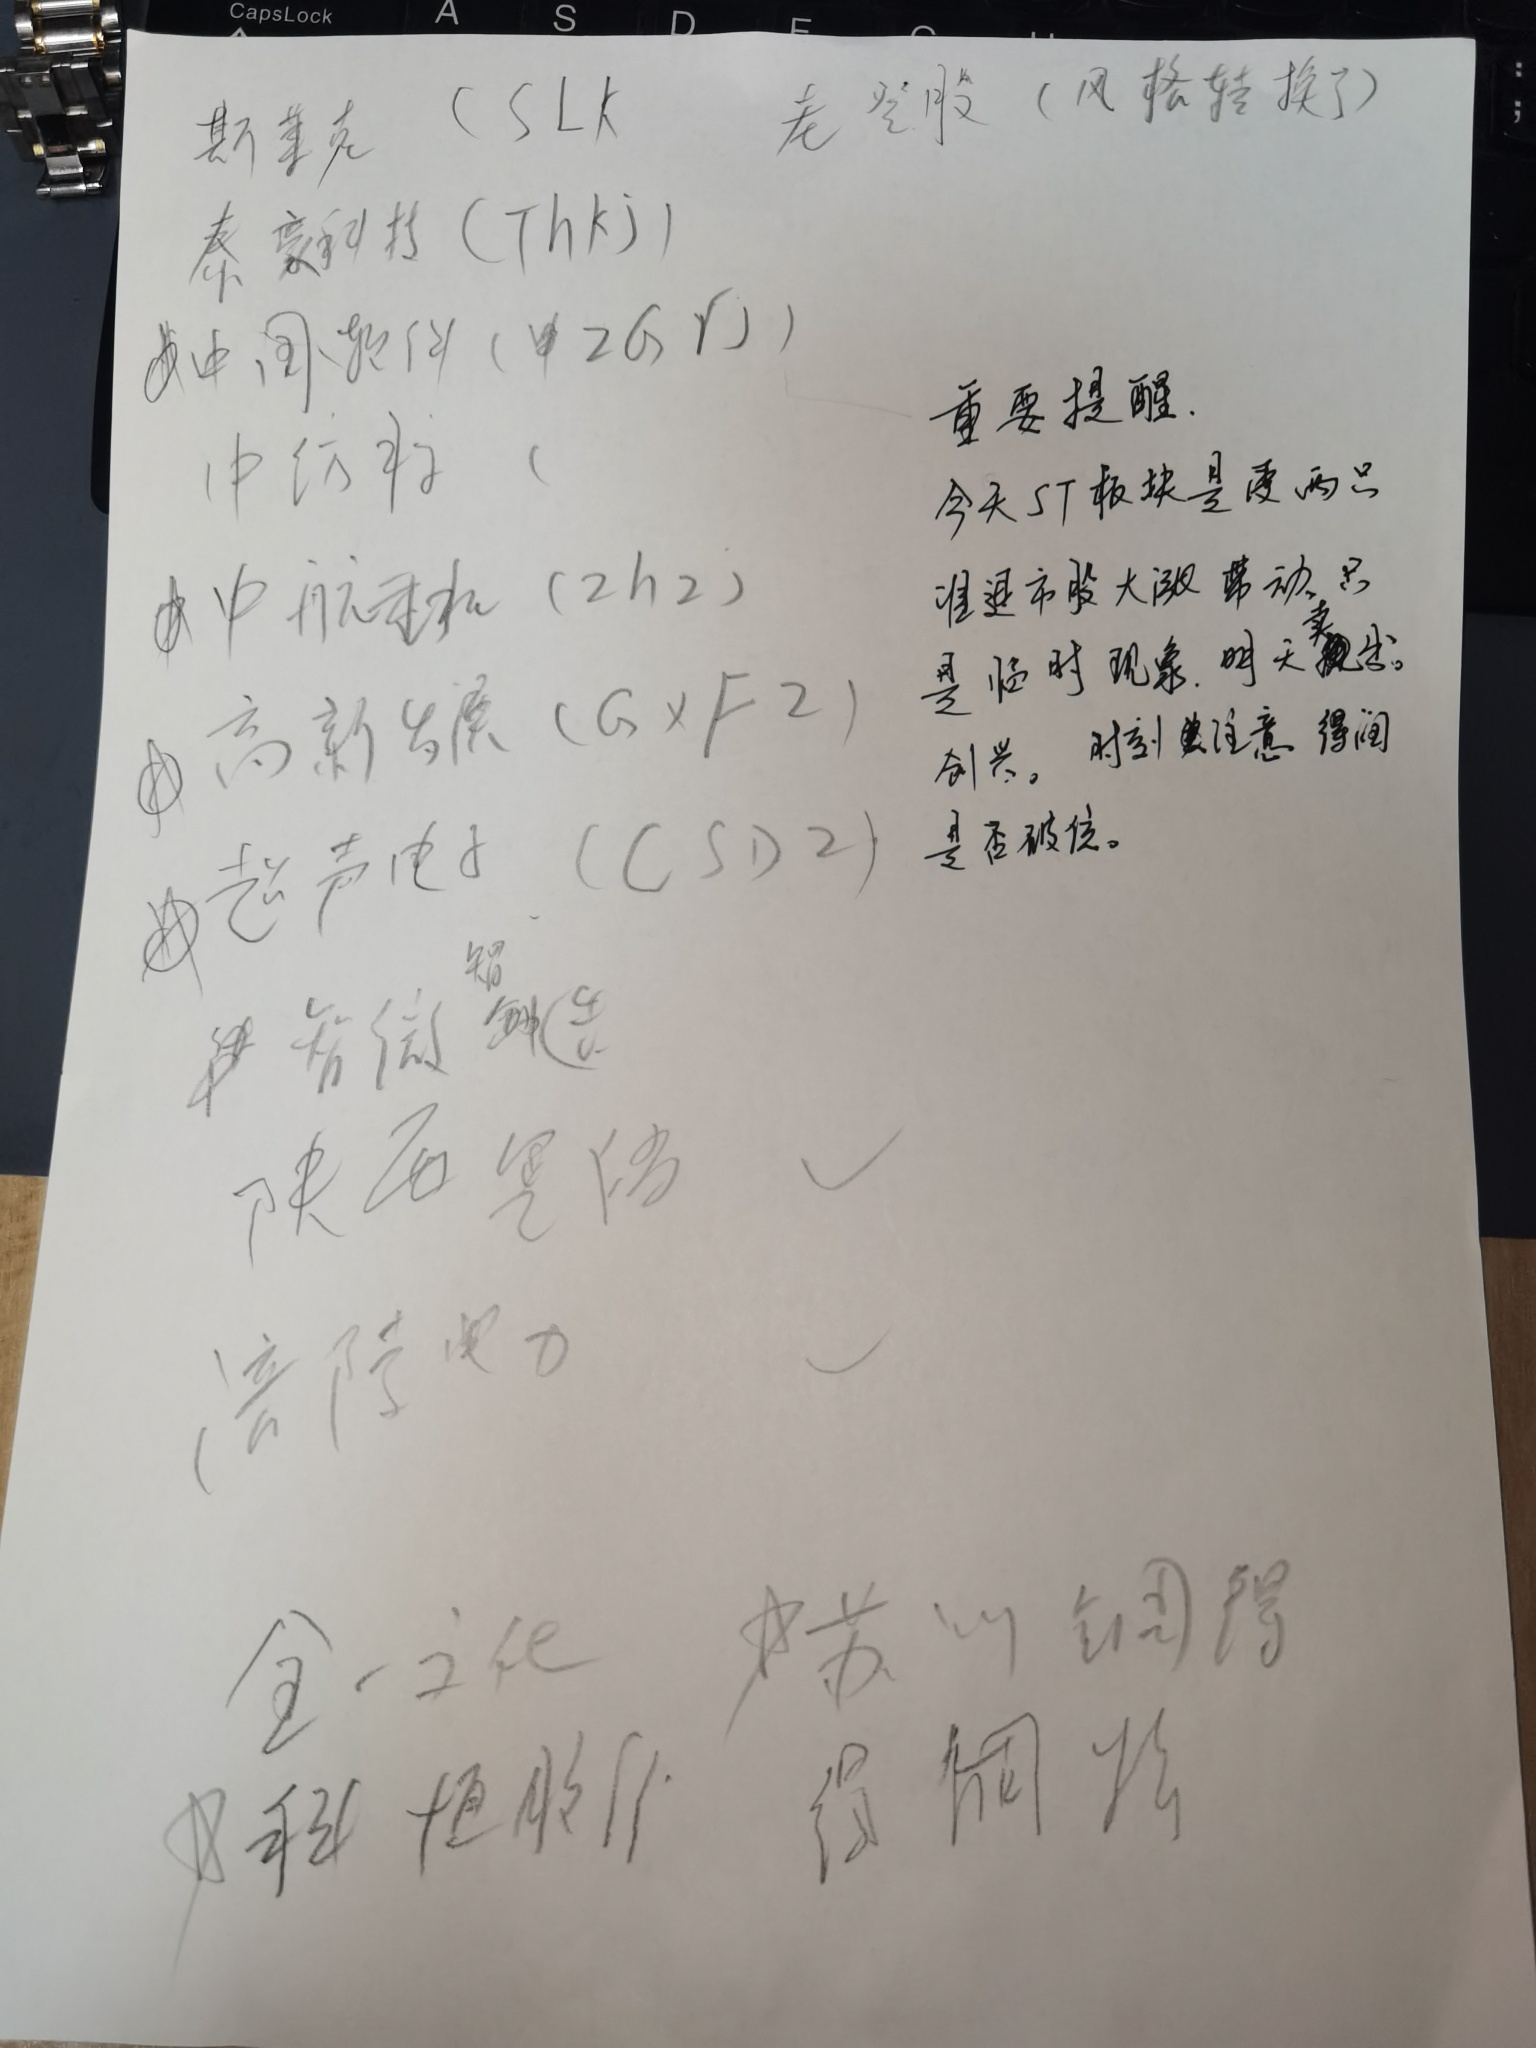 CapsLock A S D F G H
斯莱克 (SLK 老登股 (风格转换了)
泰豪科技 (Thkj)
中国软件 (ZGrj)
中纺
中航重机 (Zhz)
高新发展 (GxFZ)
超声电子 (CSDZ)
智微智造
陕西黑猫 ✓
涪陵电力 ✓
金一文化 苏州
科恒股份
重要提醒.
今天ST板块是受两只
准退市股大涨带动、只
是临时现象. 明天卖出。
创兴。 时刻注意 得润
是否破位。